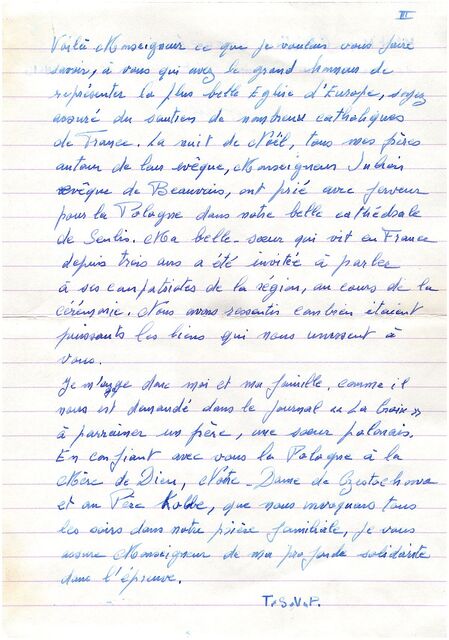 III
Voilà Monseigneur ce que je voulais vous faire
savoir, à vous qui avez le grand honneur de
représenter la plus belle Eglise d'Europe, soyez
assuré du soutien de nombreux catholiques
de France. La nuit de Noël, tous mes frères
autour de leur evêque, Monseigneur
evêque de Beauvais, ont prié avec ferveur
pour la Pologne dans notre belle cathédrale
de Senlis. Ma belle-soeur qui vit en France
depuis trois ans a été invitée à parler
à ses compatriotes de la région, au cours de la
cérémonie. Nous avons ressentis combien étaient
puissants les liens qui nous unissent à
vous.
Je m'engage donc moi et ma famille, comme il
nous est demandé dans le journal "La Croix"
à parrainer un frère, une soeur polonais.
En confiant avec vous la Pologne à la
Mère de Dieu, Notre-Dame de Czestochowa
et au Père Kolbe, que nous invoquons tous
les soirs dans notre prière familiale, je vous
assure Monseigneur de ma profonde solidarité
dans l'épreuve.
T.S.V.P.